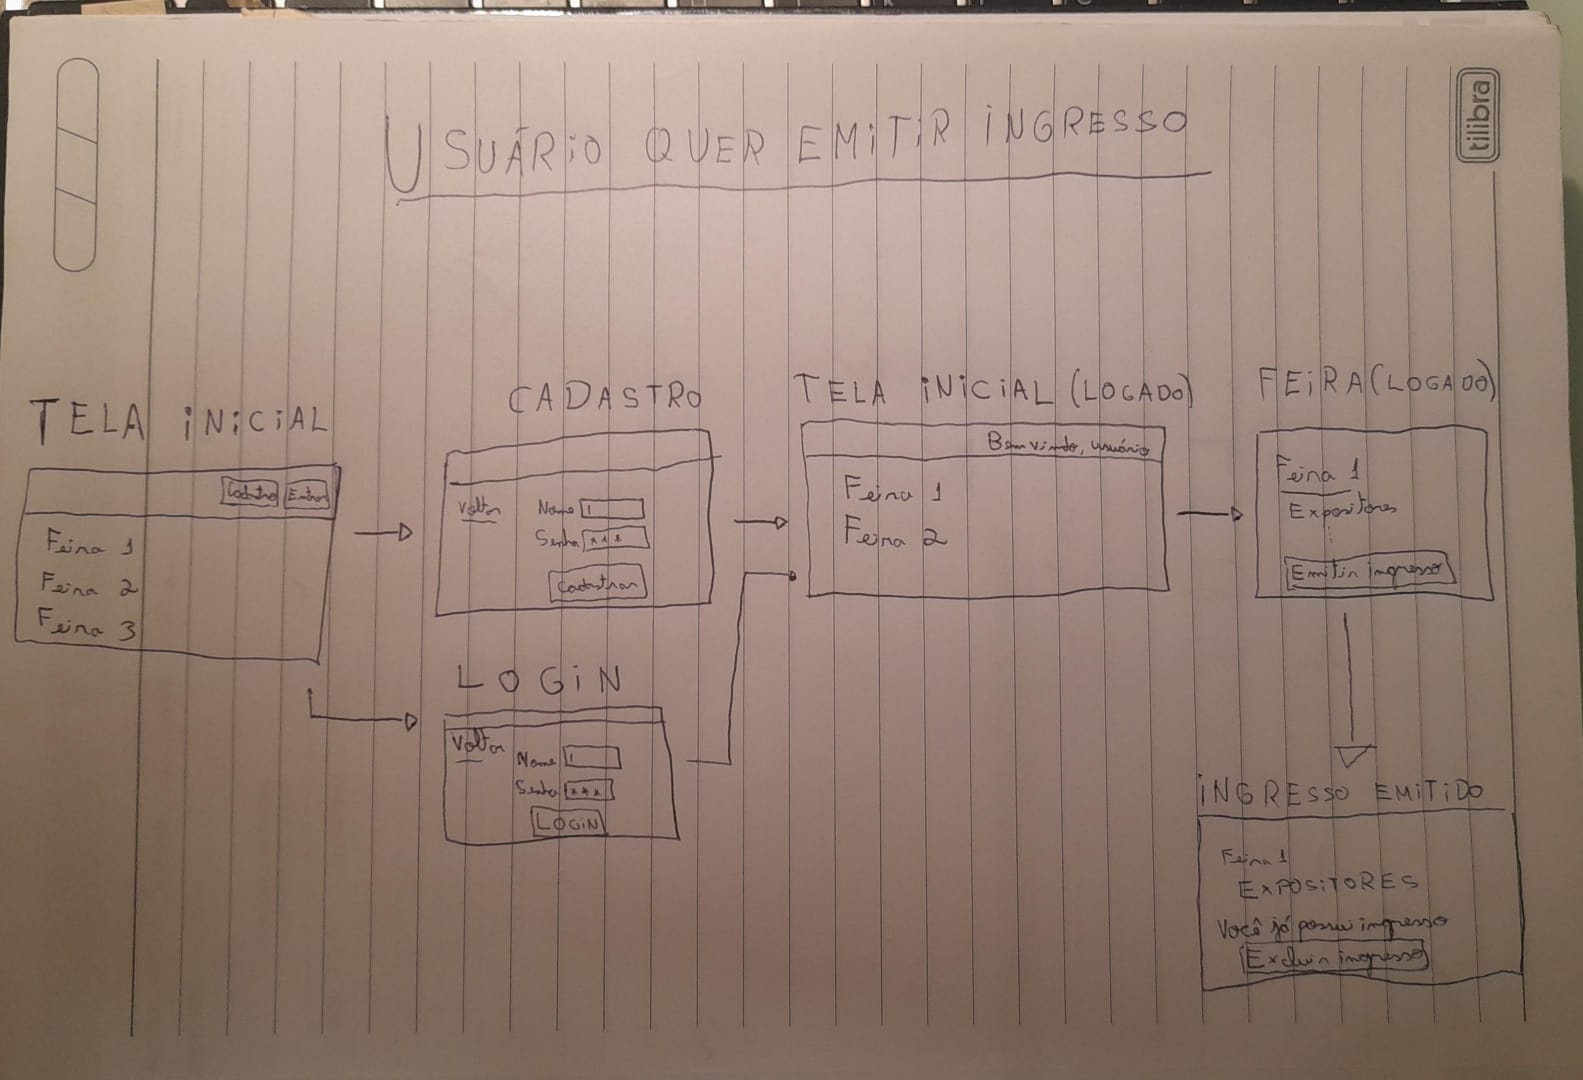 tilibra
USUÁRIO QUER EMITIR INGRESSO
TELA INICIAL
Cadastro Entrar
Feira 1
Feira 2
Feira 3
CADASTRO
Voltar
Nome
Senha ***
Cadastrar
LOGIN
Voltar
Nome
Senha ***
LOGIN
TELA INICIAL (LOGADO)
Bem vindo, usuário
Feira 1
Feira 2
FEIRA (LOGADO)
Feira 1
Expositores
Emitir ingresso
INGRESSO EMITIDO
Feira 1
EXPOSITORES
Você já possui ingresso
Excluir ingresso